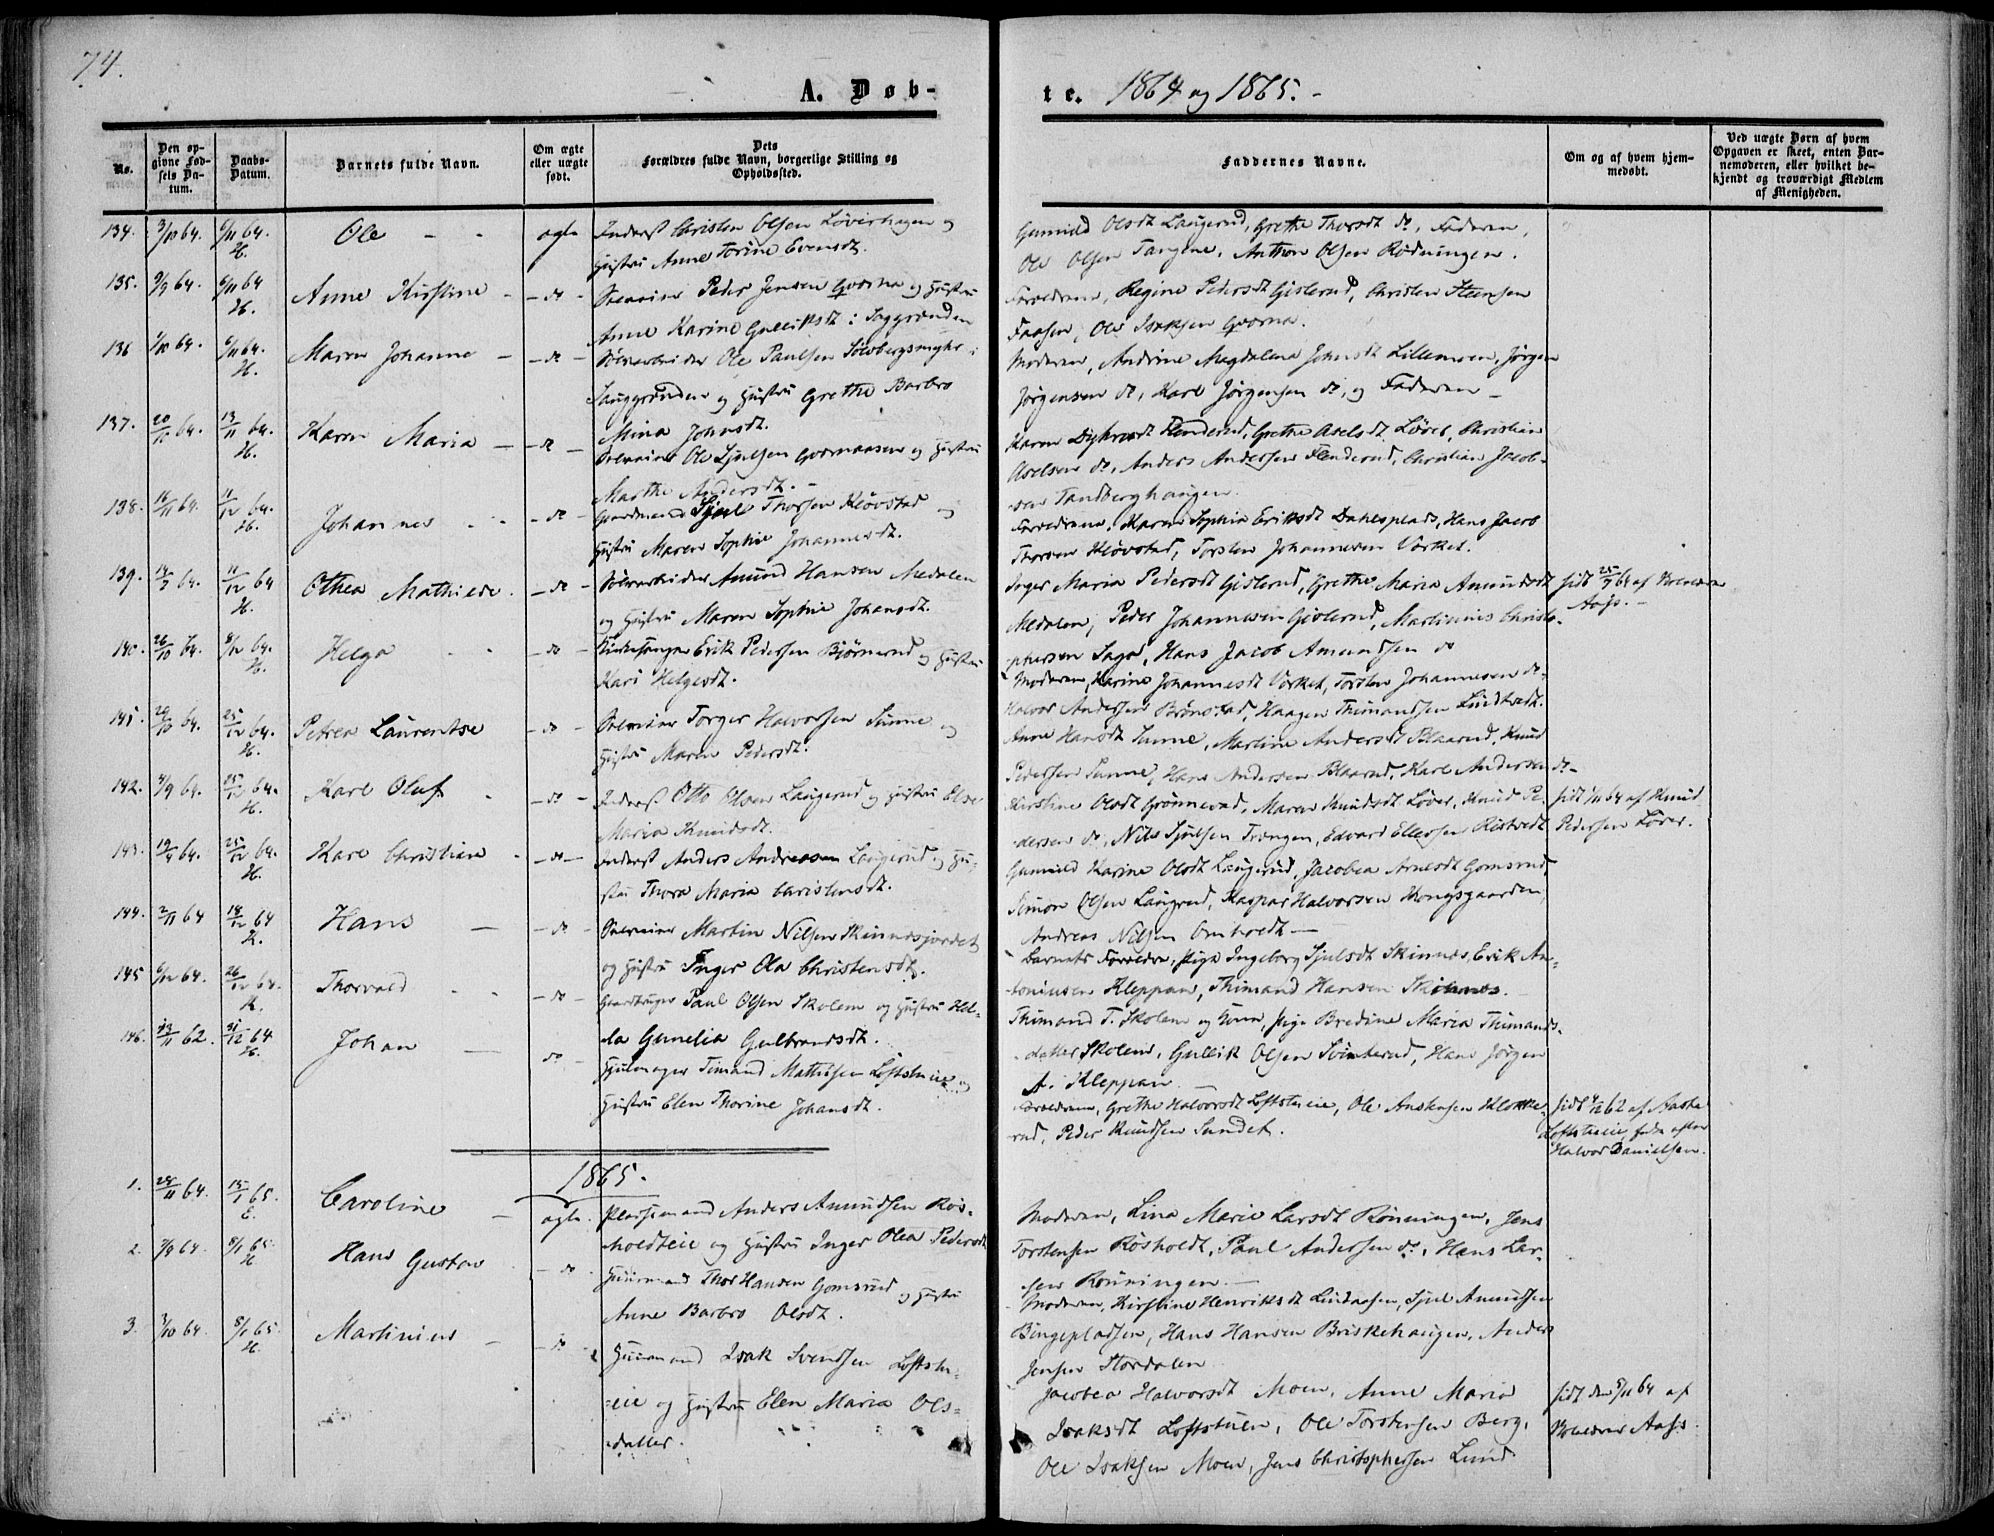 74.
A. Døb-
te. 1864 og 1865.-
No.
Den op-
givne Fød-
sels Da-
tum.
Daabs-
Datum.
Barnets fulde Navn.
Om ægte
eller uægte
født.
Dets
Forældres fulde Navn, borgerlige Stilling og
Opholdssted.
Faddernes Navne.
Om og af hvem hjem-
medøbt.
Ved uægte Børn af hvem
Opgaven er skeet, enten Bar-
nemoderen, eller hvilket be-
kjendt og troværdigt Medlem
af Menigheden.
134. 3/10 64. 6/11 64. H. Ole - - ægte Inderst Christen Olsen Løverhagen og
Hustru Anne Torine Evensdt.
Gunnild Olsdt Laugerud, Grethe Thorsdt do, Faderen,
Ole Olsen Tangene, Anthon Olsen Rødningen.
135. 2/9 64. 6/11 64 H. Anne Kirstine - do - Peder Jensen Qvorna og Hustru
Anne Karine Gulliksdt i Saggrænden
Forældrene, Regine Pedersdt Gislerud, Christen Steensen
Faasen, Ole Isaksen Qvorna.
136 1/10 64. 6/11 64. H. Maren Johanne - do - Sølvarbeider Ole Paulsen Sølvbergsmyhr i
Sauggrænden og Hustru Grethe Barbro
Mina Johnsdt.
Moderen, Andrine Magdalena Johnsdt Lillemoen, Jørgen
Jørgensen do, Karl Jørgensen do, og Faderen -
137. 20/10 64. 13/11 64. H. Karen Maria - do - Ole Sjulsen Qvornaasen og Hustru
Marthe Andersdt. -
Karen Flenderud, Grethe Axelsdt Løver, Christian
Axelsen do, Anders Andersen Flenderud, Christian Jacob-
sen Tandberghaugen.
138. 16/11 64. 11/12 64. H. Johannes - do - Gaardmand Sjul Thorsen Kløvstad og
Hustru Maren Sophie Johannesdt.
Forældrene, Karen Sophie Eriksdt Dahlsplads, Hans Jacob
Thorsen Kløvstad, Torsten Johannesen Vorket.
139. 14/7 64. 11/12 64 H. Othea Mathilde. - do - Sølvarbeider Amund Hansen Medalen
og Hustru Maren Sophie Johansdt.
Inger Maria Pedersdt Gislerud, Grethe Maria Amundsdt
Medalen, Peder Johannesen Gislerud, Martinius Christo-
phersen Saga, Hans Jacob Amundsen do
25/7 64 af
Aass. -
140. 26/10 64. 8/12 64. H. Helga - do - Kirkesanger Erik Pedersen Bjørnerud og Hustru
Kari Helgesdt.
Moderen, Karine Johannesdt Vorket, Torsten Johannesen do.
Halvor Andersen Brønstad, Haagen Thimandsen Lindtvedt.
141. 29/10 64. 25/12 64. H. Petrea Laurentse - do - Torger Halvorsen Sunne og
Hustru Maren Pedersdt.
Anne Hansdt Sunne, Martine Andersdt Blaarud, Knud
Pedersen Sunne, Hans Andersen Blaarud, Karl Andersen do -
142. 4/9 64. 25/12 64. H. Karl Oluf - do - Inderst Otto Olsen Laugerud og Hustru Else
Maria Knudsdt.
Kirstine Olsdt Grønnerud, Maren Knudsdt Løver, Knud Pe-
dersen do, Nils Sjulsen Trængen, Edvard Ellefsen Ristvedt
1/11 64 af Knud
Pedersen Løver.
143. 19/9 64. 25/12 64. H. Karl Christian - do - Inderst Anders Andreasen Laugerud og Hu-
stru Thora Maria Christensdt.
Gunnild Karine Olsdt Laugerud, Jacobea Arnesdt Gomsrud,
Simon Olsen Laugerud, Kaspar Halvorsen Kongsgaarden,
Andreas Nilsen Omholdt -
144. 2/11 64 18/12 64 K. Hans - do - Martin Nilsen Skinnesjordet
og Hustru Inger Ola Christensdt.
Barnets Forældre, Pige Ingeborg Sjulsdt Skinnes, Erik An-
toniusen Kleppan, Thimand Hansen Skinnes. -
145 6/12 64. 26/12 64. K. Thorvald - do - Gaardbruger Paul Olsen Skolem og Hustru Hel-
ela Gunelia Gulbrandsdt.
Thimand T. Skolem og Kone, Pige Bredine Maria Thimands-
datter Skolem, Gullik Olsen Svinterud, Hans Jørgen
A. Kleppan. -
146. 23/11 62. 31/12 64 H. Johan - do - Hjulmager Timand Mathisen Loftstueie og
Hustru Elen Thorine Johansdt.
Forældrene, Grethe Halvorsdt Loftstueie, Ole Anstensen Klokke-
rud, Peder Knudsen Sundet.
4/12 62 af Aasta
Loftstueie, efter
Halvor Danielsen.
1865.
1. 25/11 64. 15/1 65. E. Caroline - ægte. Pladsemand Anders Amundsen Røs-
holdteie og Hustru Inger Olea Pedersdt
Moderen, Lina Marie Larsdt Rønningen, Jens
Torstensen Røsholdt, Paul Andersen do, Hans Lar-
sen Rønningen -
2. 7/9 64. 8/1 65. H. Hans Gustav - do - Huusmand Thor Hansen Gomsrud og Hustru
Anne Barbro Olsdt.
Moderen, Kirstine Henriksdt Lindaasen, Sjul Amundsen
Bingepladsen, Hans Hansen Briskehaugen, Anders
Jensen Stordalen
3. 3/10 64. 8/1 65. H. Martinius - do - Huusmand Isak Svendsen Loftstu-
eie og Hustru Elen Maria Ols-
datter.
Jacobea Halvorsdt Moen, Anne Maria
Isaksdt Loftstuen, Ole Torstensen Berg,
Ole Isaksen Moen, Jens Christophersen Lund
den 5/11 64 af
Aass.